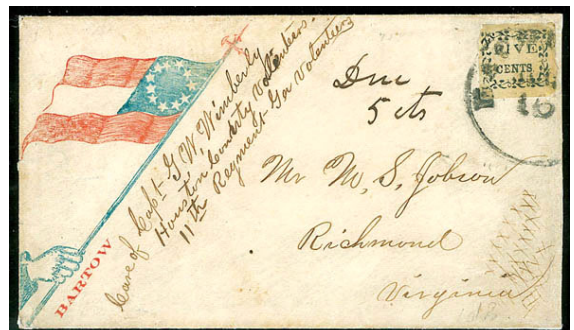 FIVE
CENTS
16
Due
5 cts
Care of Capt G. W. Wimberly
Houston County Volunteers.
11th Regiment Ga Volunteers
Mr M. S. Jobson
Richmond
Virginia
BARTOW